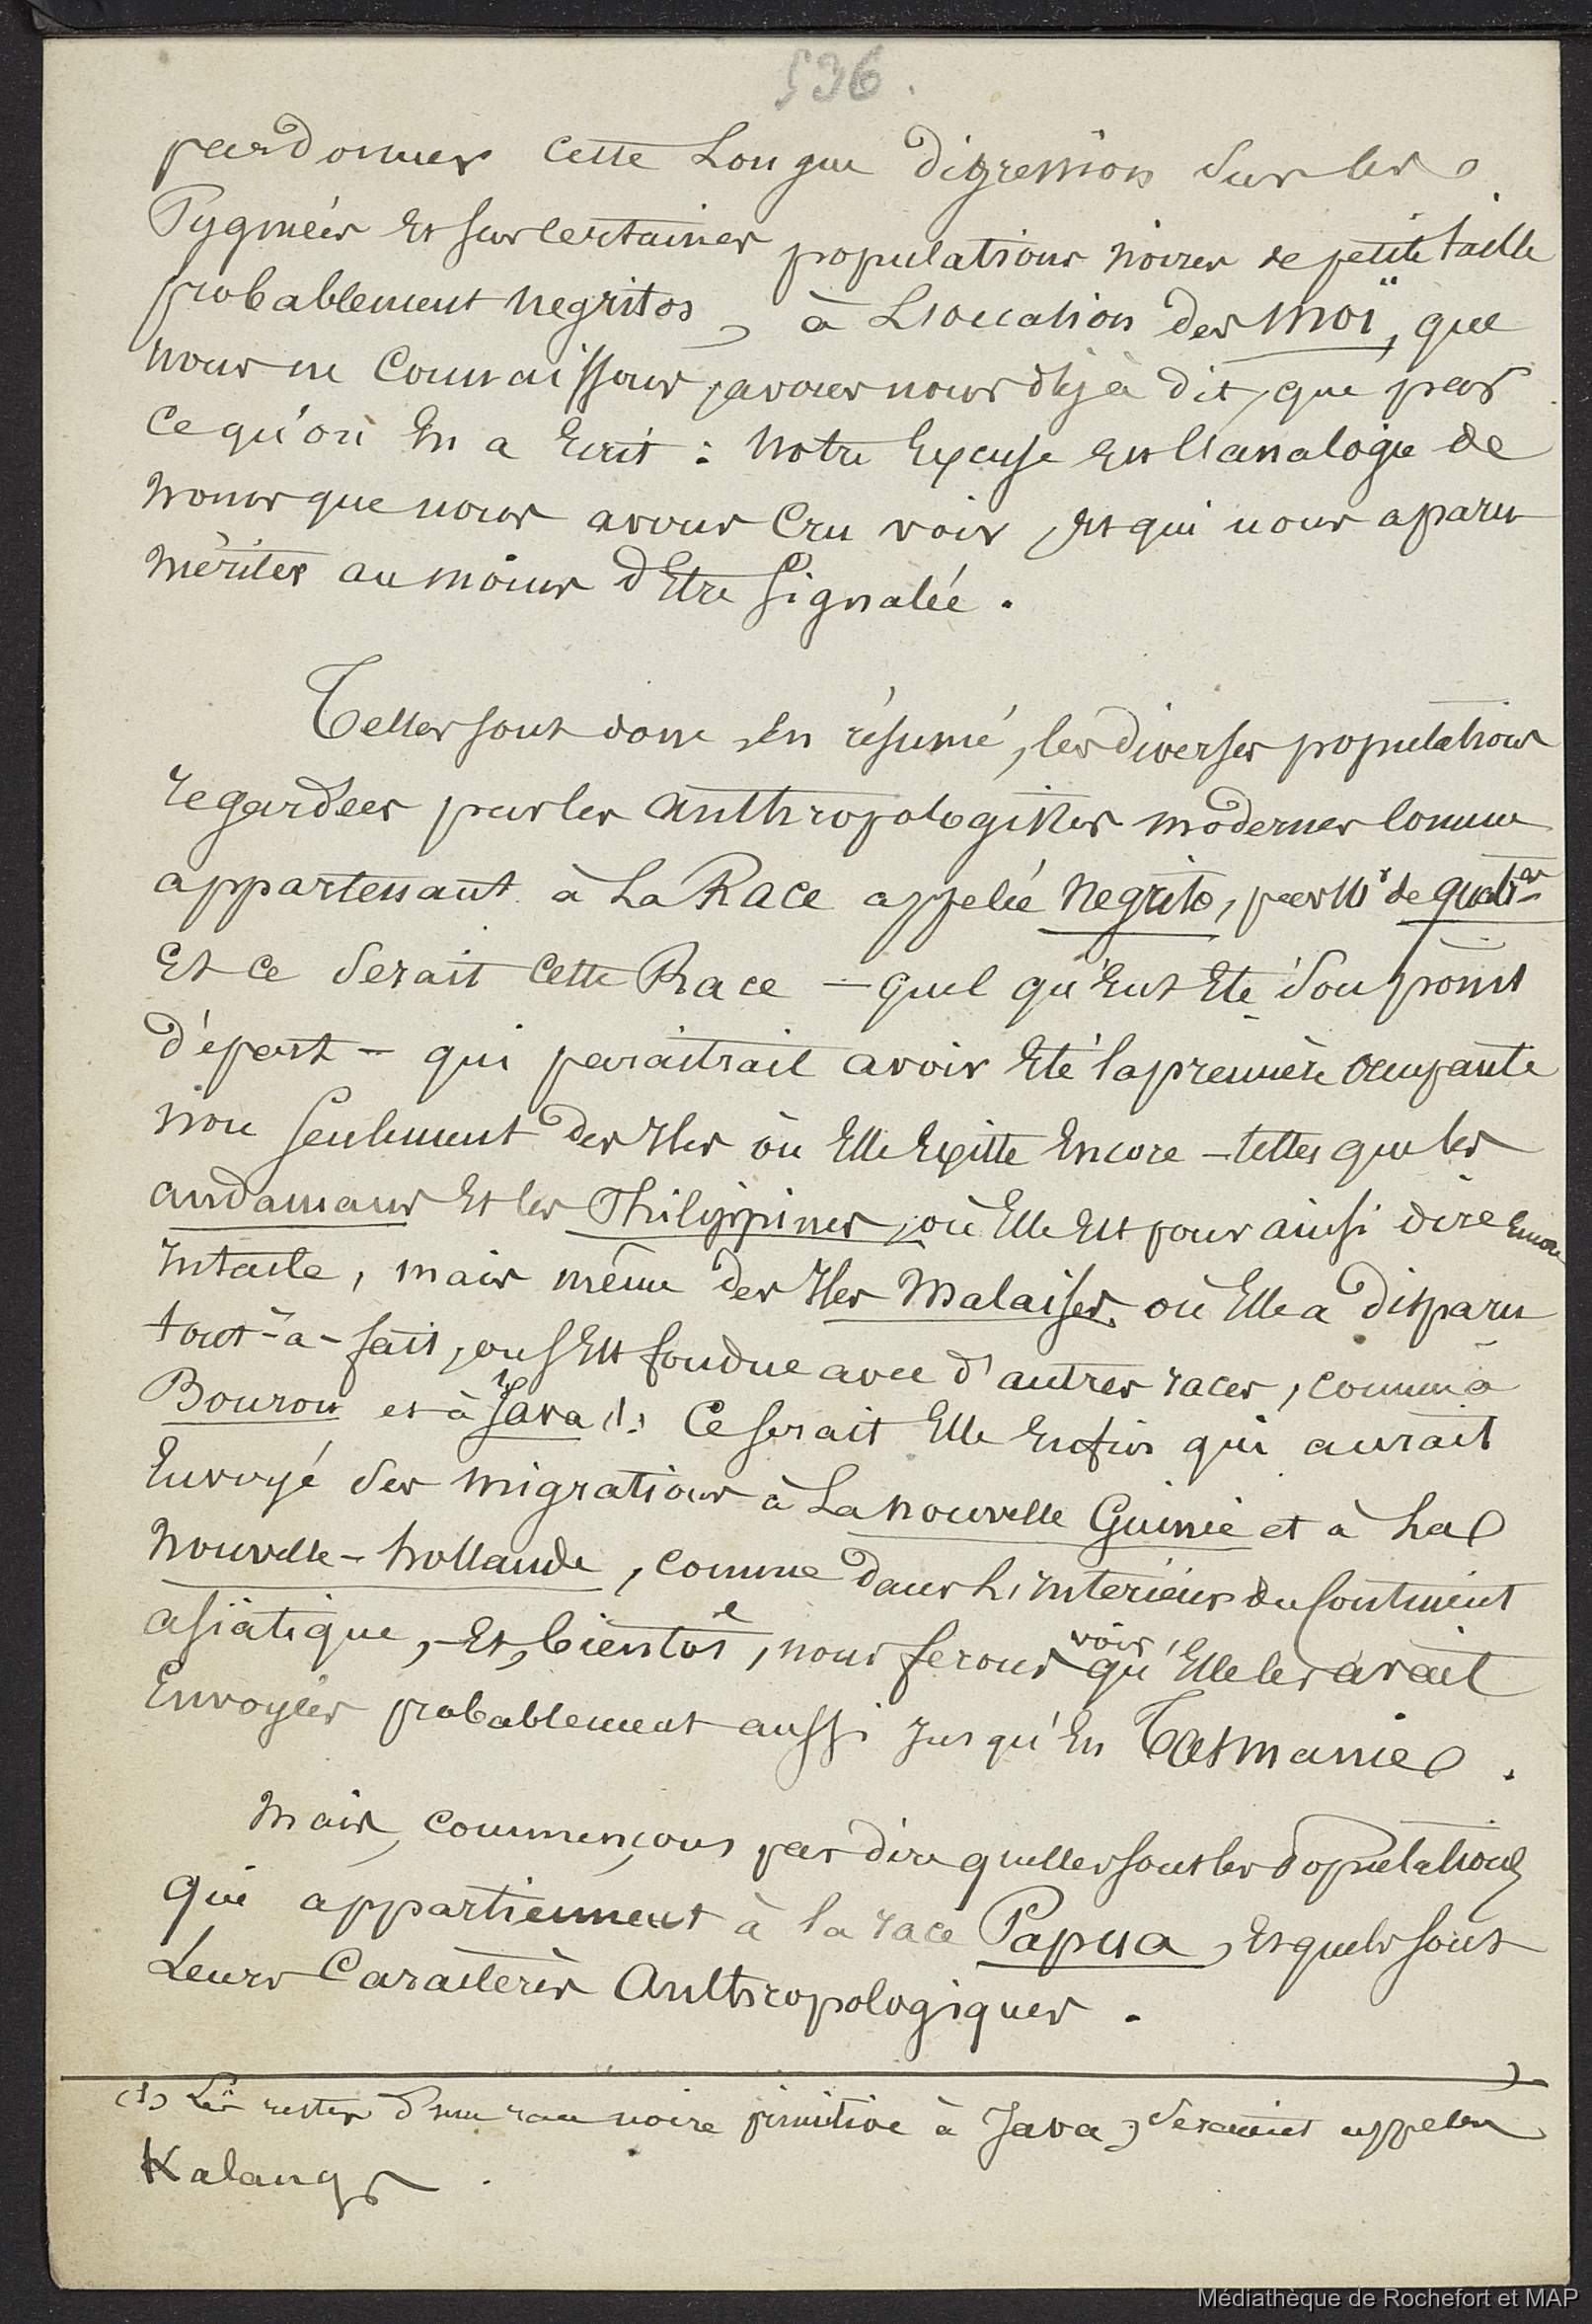 536.
pardonner cette longue digression sur les
Pygmées et sur certaines populations noires de petite taille
probablement negritos, à L'occasion des Moï, que
nous ne connaissons, avons nous déjà dit, que par
ce qu'on en a Ecrit : notre Excuse est l'analogie de
noms que nous avons cru voir, et qui nous a paru
mériter au moins d'Etre signalée.
Telles sont donc, En résumé, les diverses populations
regardées par les anthropologistes modernes comme
appartenant à La Race appelée Negrito, par Mr de Quatr
Et ce serait cette Race — quel qu'eut Eté son point
départ — qui paraitrait avoir Eté la première occupante
non seulement des Iles où Elle Existe Encore — telles que les
andamans et les Philippines, où Elle Est pour ainsi dire Encore
intacte, mais même des Iles Malaises, où Elle a disparu
tout-à-fait, ou s'Est fondue avec d'autres races, comme à
Bourou et à Java (1). Ce serait Elle Enfin qui aurait
Envoyé des migrations à La nouvelle Guinée et à La
Nouvelle-hollande, comme dans L'intérieur du Continent
asiatique, Et, bientôt, nous ferons voir qu'Elle les avait
Envoyées probablement aussi jusqu'En Tasmanie.
Mais, commençons par dire quelles sont les populations
qui appartiennent à la race Papua, Et quels sont
Leurs Caractères Anthropologiques.
(1) Les restes d'une race noire primitive à Java, seraient appelés
Kalangs.
Médiathèque de Rochefort et MAP